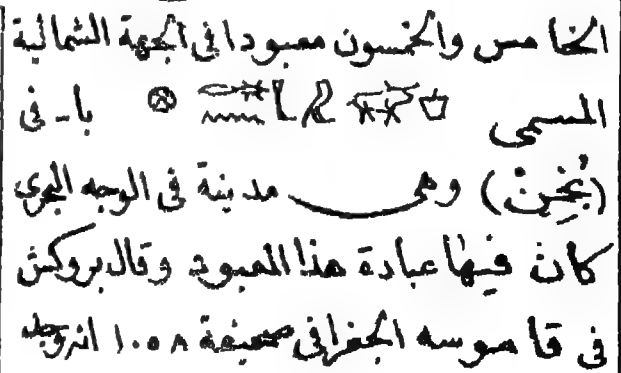 الخامس والخمسون معبودا فى الجهة الشمالية
المسمى با - فى
(بُخِنْ) وهى مدينة فى الوجه البحرى
كان فيها عبادة هذا المعبود وقال بروكش
فى قاموسه الجغرافى صحيفة ١٠٥٨ انه وجد